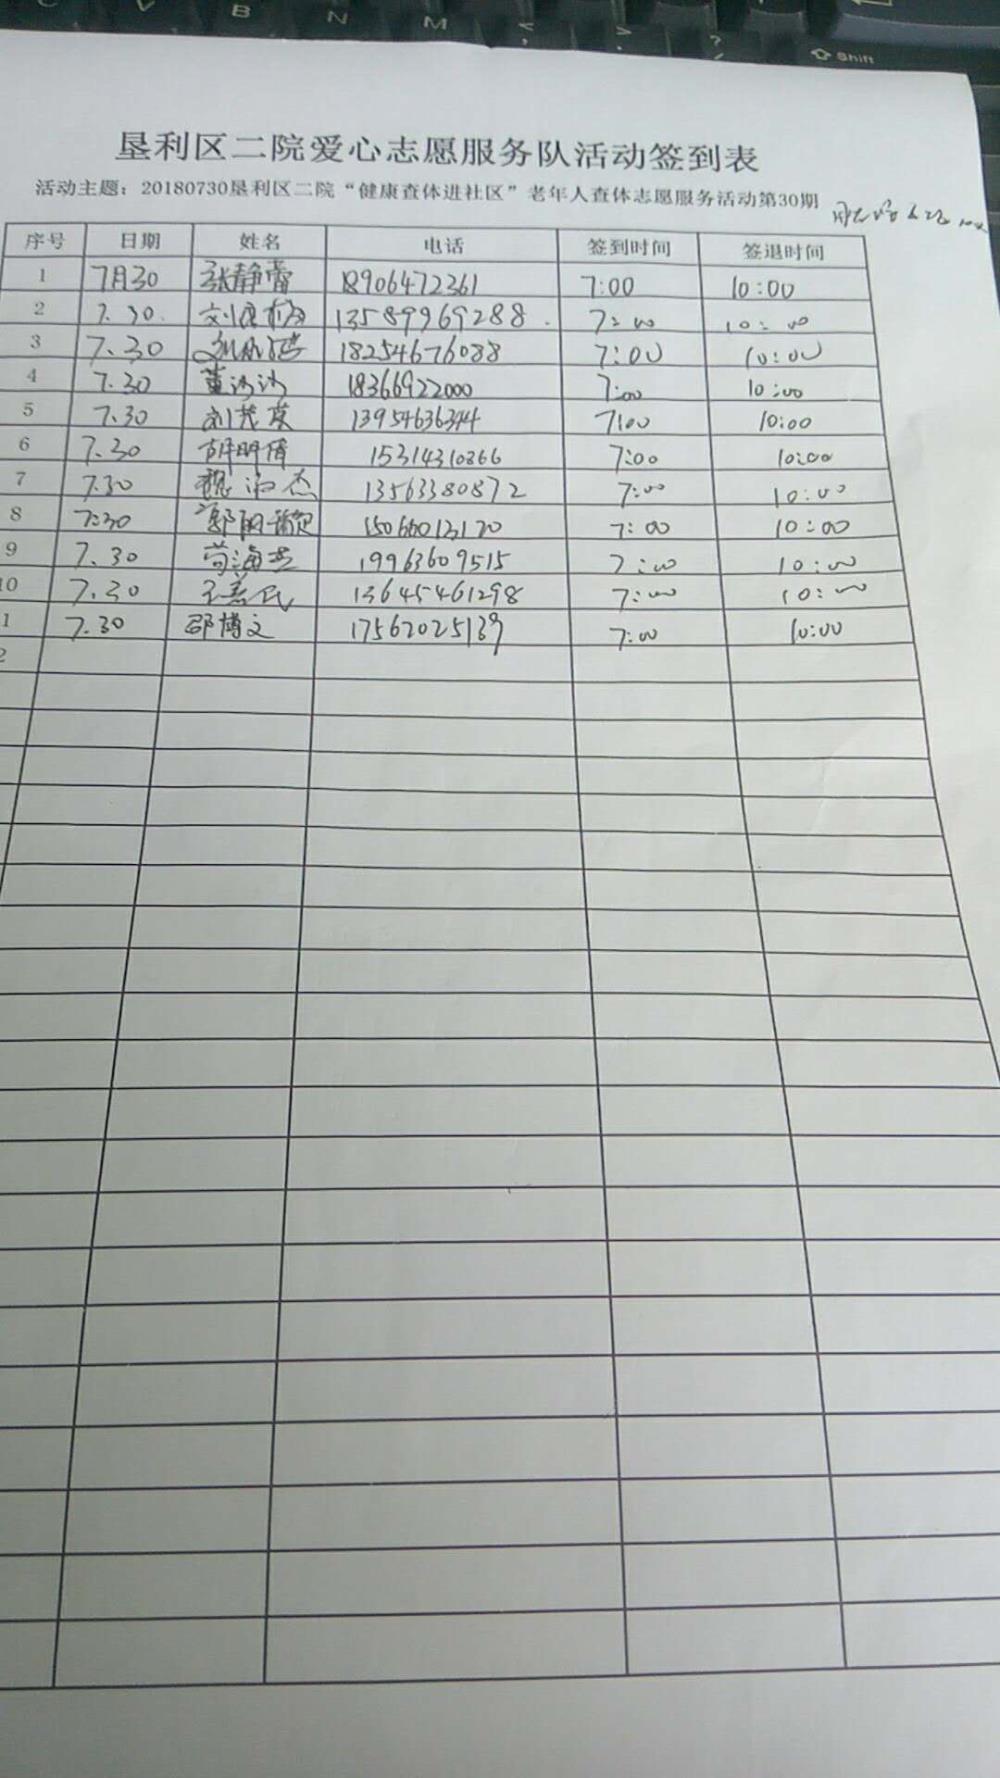 B N M
Shift
垦利区二院爱心志愿服务队活动签到表
活动主题：20180730垦利区二院“健康查体进社区”老年人查体志愿服务活动第30期
序号 日期 姓名 电话 签到时间 签退时间
1 7月30 张静 18906472361 7:00 10:00
2 7.30. 刘 13589969288. 7:00 10:00
3 7.30 18254676088 7:00 10:00
4 7.30 董沙沙 18366922000 7:00 10:00
5 7.30 刘芪英 7:00 10:00
6 7.30 胡明倩 15314310866 7:00 10:00
7 7.30 魏 杰 13563380872 7:00 10:00
8 7:30 郭 15066013120 7:00 10:00
9 7.30 苟海 19963609515 7:00 10:00
10 7.30 民 13645461298 7:00 10:00
1 7.30 邵博文 17562025139 7:00 10:00
2